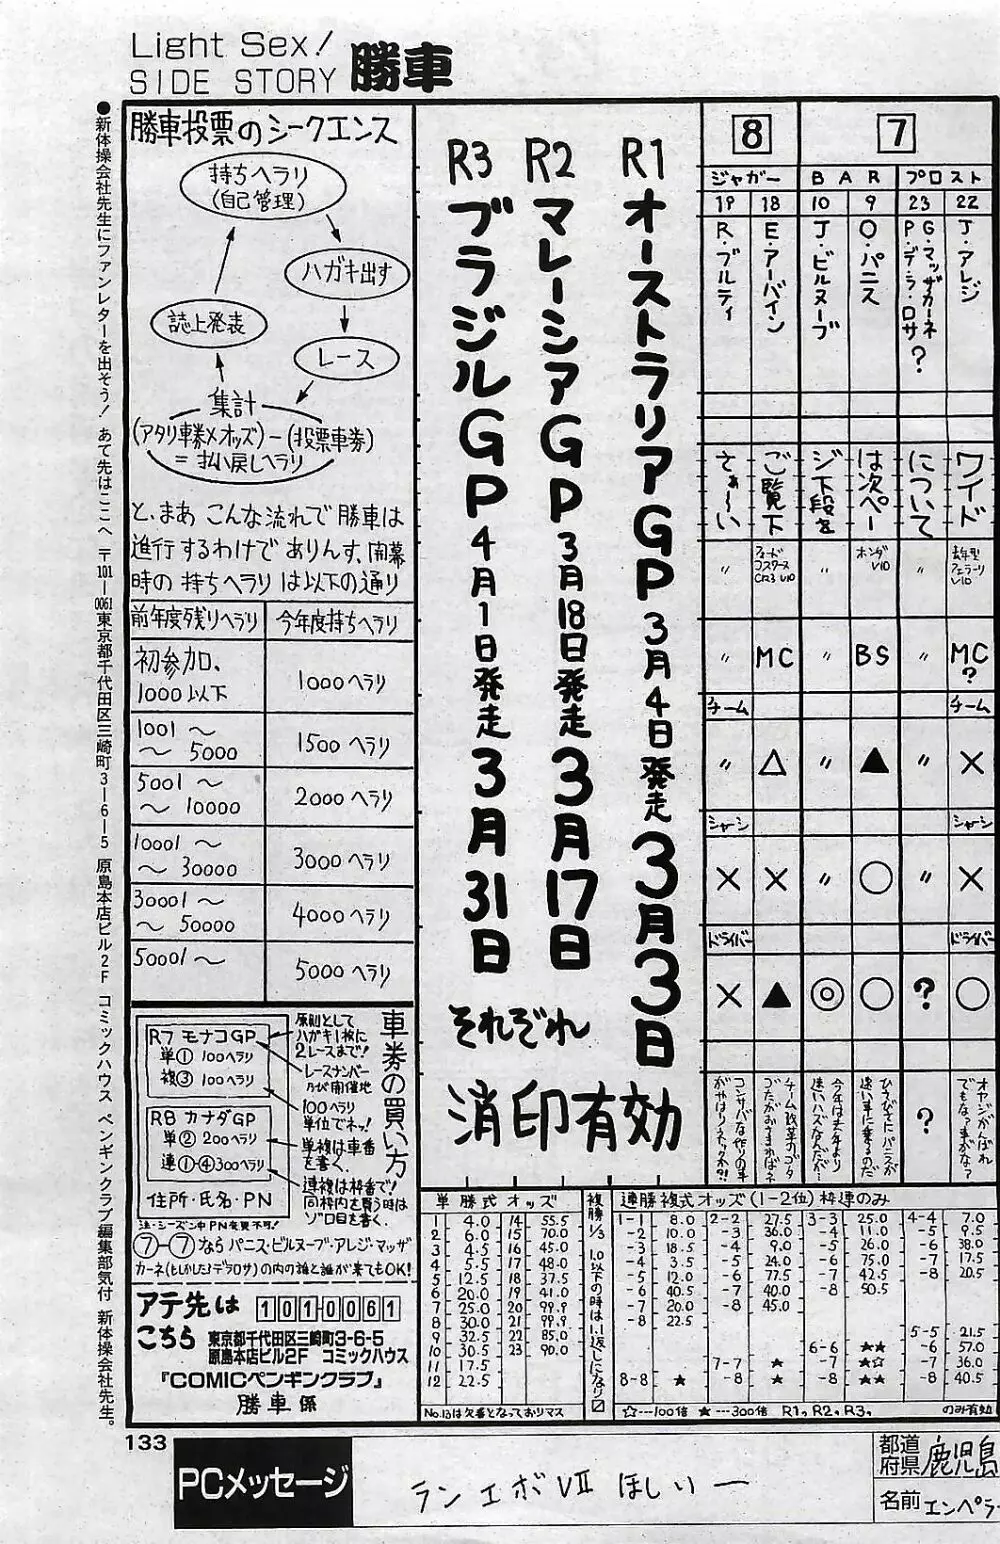 Light Sex!
SIDE STORY 勝車
●新体操会社先生にファンレターを出そう! あて先はここへ 〒101―0061東京都千代田区三崎町3―6―5 原島本店ビル2F コミックハウス ペンギンクラブ編集部気付 新体操会社先生。
勝車投票のシークエンス
持ちヘラリ
(自己管理)
ハガキ出す
レース
集計
(アタリ車券×オッズ)−(投票車券)
=払い戻しヘラリ
誌上発表
と、まあ こんな流れで 勝車は
進行するわけで ありんす。開幕
時の持ちヘラリ は以下の通り
前年度残りヘラリ 今年度持ちヘラリ
初参加、
1000以下 1000ヘラリ
1001〜
〜5000 1500ヘラリ
5001〜
〜10000 2000ヘラリ
10001〜
〜30000 3000ヘラリ
30001〜
〜50000 4000ヘラリ
50001〜 5000ヘラリ
車券の買い方
原則として
ハガキ1枚に
2レースまで!
レースナンバー
及び開催地
100ヘラリ
単位でネッ!
単複は車番
を書く、
連複は枠番で!
同枠内を買う時は
ゾロ目を書く、
R7 モナコGP
単① 100ヘラリ
複③ 100ヘラリ
R8 カナダGP
単② 200ヘラリ
連①-④300ヘラリ
住所・氏名・PN
注・シーズン中PN変更不可!
⑦−⑦なら パニス・ビルヌーブ・アレジ・マッザ
カーネ(もしかしたらデラロサ)の内の誰と誰が来てもOK!
アテ先は 101-0061
こちら 東京都千代田区三崎町3-6-5
原島本店ビル2F コミックハウス
『COMICペンギンクラブ』
勝車係
R1 オーストラリアGP 3月4日発走 3月3日
R2 マレーシアGP 3月18日発走 3月17日
R3 ブラジルGP 4月1日発走 3月31日
それぞれ
消印有効
8 7
ジャガー BAR プロスト
19 18 10 9 23 22
J・アレジ
G・マッザカーネ
P・デ・ラ・ロサ?
O・パニス
J・ビルヌーブ
E・アーバイン
R・ブルティ
ワイド
について
は次ペー
ジ下段を
ご覧下
さぁ〜い
〃 フォードコスワースCR3 V10 〃 ホンダV10 〃 去年型フェラーリV10
〃 MC 〃 BS 〃 MC?
チーム チーム
〃 △ 〃 ▲ 〃 ×
シャーシ シャーシ
× × 〃 ○ 〃 ×
ドライバー ドライバー
× ▲ ◎ ○ ? ○
オヤジがんばれでもな?車がな?
?
ひさびさにパニスが速い車に乗るのだ
今年は去年より速いハズなんだが…
チーム改革のゴタゴタがおさまればネ
コンサバな作りの車がやはりネックか?!
単勝式オッズ
1 4.0 14 55.5
2 6.0 15 70.0
3 4.5 16 45.0
4 5.5 17 48.0
5 12.5 18 37.5
6 20.0 19 41.0
7 25.0 20 99.9
8 30.0 21 99.9
9 32.5 22 85.0
10 30.5 23 90.0
11 17.5
12 22.5
No.13は欠番となっておりマス
複勝1/3 1.0以下の時は1.1返しになり〼
連勝複式オッズ(1-2位)枠連のみ
1-1 8.0 2-2 27.5 3-3 25.0 4-4 7.0
-2 10.0 -3 36.0 -4 11.0 -5 9.5
-3 18.5 -4 9.0 -5 26.0 -6 38.0
-4 3.5 -5 24.0 -6 75.0 -7 17.5
-5 12.0 -6 77.5 -7 42.5 -8 20.5
-6 40.5 -7 40.0 -8 50.5
-7 20.0 -8 45.0
-8 22.5
5-5 21.5
6-6 ★★ -6 57.0
7-7 ★ -7 ★☆ -7 36.0
8-8 ★ -8 ★ -8 ★★ -8 40.5
☆---100倍 ★---300倍 R1, R2, R3, のみ有効
133
PCメッセージ
ランエボⅦ ほしいー
都道府県 鹿児島
名前 エンペラ